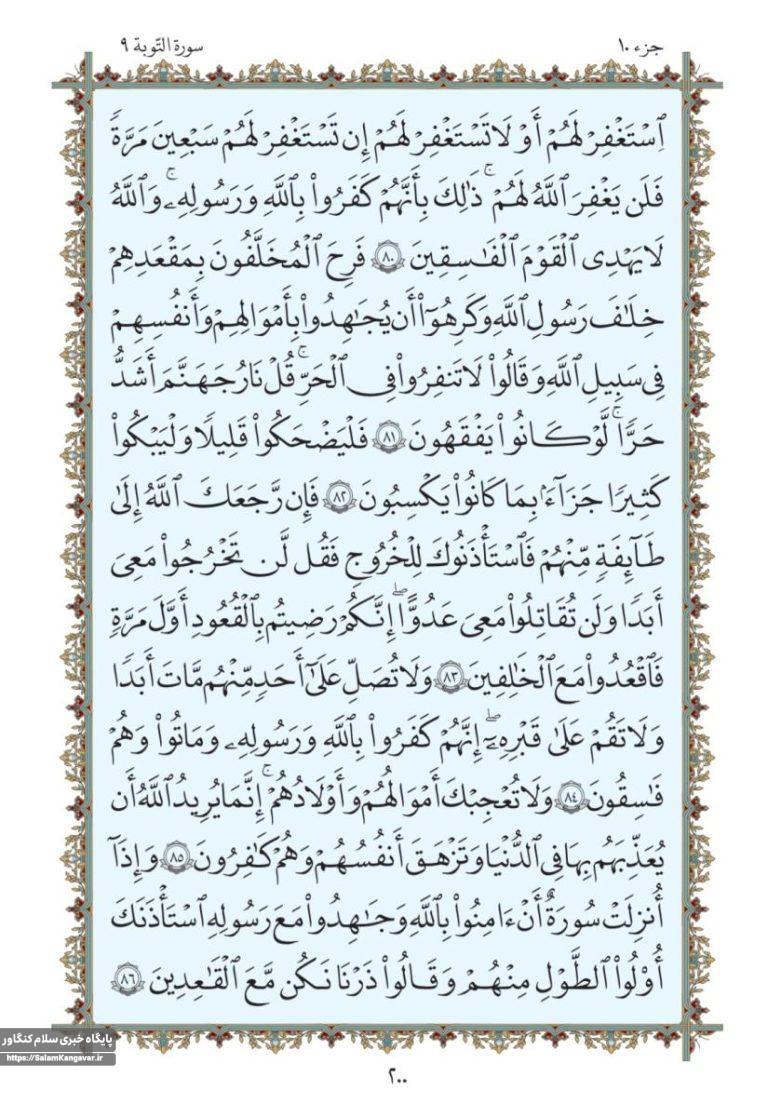 جزء ۱۰
سورة التّوبة ۹
ٱِسْتَغْفِرْ لَهُمْ أَوْ لَا تَسْتَغْفِرْ لَهُمْ إِن تَسْتَغْفِرْ لَهُمْ سَبْعِينَ مَرَّةً
فَلَن يَغْفِرَ ٱللَّهُ لَهُمْ ۚ ذَٰلِكَ بِأَنَّهُمْ كَفَرُوا۟ بِٱللَّهِ وَرَسُولِهِۦ ۚ وَٱللَّهُ
لَا يَهْدِى ٱلْقَوْمَ ٱلْفَـٰسِقِينَ ۸۰ فَرِحَ ٱلْمُخَلَّفُونَ بِمَقْعَدِهِمْ
خِلَـٰفَ رَسُولِ ٱللَّهِ وَكَرِهُوٓا۟ أَن يُجَـٰهِدُوا۟ بِأَمْوَٰلِهِمْ وَأَنفُسِهِمْ
فِى سَبِيلِ ٱللَّهِ وَقَالُوا۟ لَا تَنفِرُوا۟ فِى ٱلْحَرِّ ۗ قُلْ نَارُ جَهَنَّمَ أَشَدُّ
حَرًّا ۚ لَّوْ كَانُوا۟ يَفْقَهُونَ ۸۱ فَلْيَضْحَكُوا۟ قَلِيلًا وَلْيَبْكُوا۟
كَثِيرًا جَزَآءًۢ بِمَا كَانُوا۟ يَكْسِبُونَ ۸۲ فَإِن رَّجَعَكَ ٱللَّهُ إِلَىٰ
طَآئِفَةٍ مِّنْهُمْ فَٱسْتَأْذَنُوكَ لِلْخُرُوجِ فَقُل لَّن تَخْرُجُوا۟ مَعِىَ
أَبَدًا وَلَن تُقَـٰتِلُوا۟ مَعِىَ عَدُوًّا ۖ إِنَّكُمْ رَضِيتُم بِٱلْقُعُودِ أَوَّلَ مَرَّةٍ
فَٱقْعُدُوا۟ مَعَ ٱلْخَـٰلِفِينَ ۸۳ وَلَا تُصَلِّ عَلَىٰٓ أَحَدٍ مِّنْهُم مَّاتَ أَبَدًا
وَلَا تَقُمْ عَلَىٰ قَبْرِهِۦٓ ۖ إِنَّهُمْ كَفَرُوا۟ بِٱللَّهِ وَرَسُولِهِۦ وَمَاتُوا۟ وَهُمْ
فَـٰسِقُونَ ۸٤ وَلَا تُعْجِبْكَ أَمْوَٰلُهُمْ وَأَوْلَـٰدُهُمْ ۚ إِنَّمَا يُرِيدُ ٱللَّهُ أَن
يُعَذِّبَهُم بِهَا فِى ٱلدُّنْيَا وَتَزْهَقَ أَنفُسُهُمْ وَهُمْ كَـٰفِرُونَ ۸۵ وَإِذَآ
أُنزِلَتْ سُورَةٌ أَنْ ءَامِنُوا۟ بِٱللَّهِ وَجَـٰهِدُوا۟ مَعَ رَسُولِهِ ٱسْتَأْذَنَكَ
أُو۟لُوا۟ ٱلطَّوْلِ مِنْهُمْ وَقَالُوا۟ ذَرْنَا نَكُن مَّعَ ٱلْقَـٰعِدِينَ ۸۶
پایگاه خبری سلام کنگاور
https://SalamKangavar.ir
۲۰۰